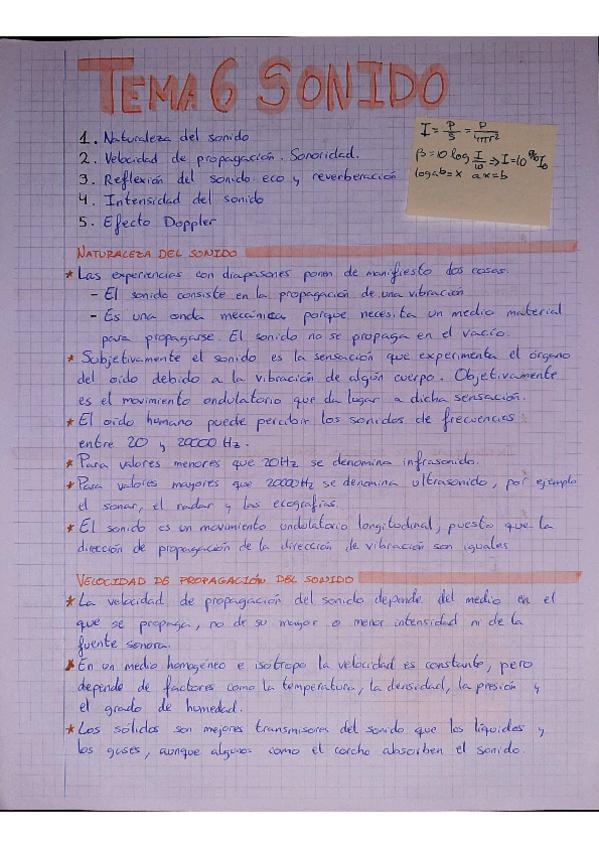 TEMA 6 SONIDO
1. Naturaleza del sonido
2. Velocidad de propagación. Sonoridad.
3. Reflexión del sonido eco y reverberación
4. Intensidad del sonido
5. Efecto Doppler
I = P/S = P/4πr²
β = 10 log I/I0 ⇒ I = 10^β/10 I0
log a b = x  a^x = b
NATURALEZA DEL SONIDO
* Las experiencias con diapasones ponen de manifiesto dos cosas.
- El sonido consiste en la propagación de una vibración
- Es una onda mecánica porque necesita un medio material
para propagarse. El sonido no se propaga en el vacío.
* Subjetivamente el sonido es la sensación que experimenta el órgano
del oído debido a la vibración de algún cuerpo. Objetivamente
es el movimiento ondulatorio que da lugar a dicha sensación.
* El oído humano puede percibir los sonidos de frecuencias
entre 20 y 20000 Hz.
* Para valores menores que 20Hz se denomina infrasonido.
* Para valores mayores que 20000Hz se denomina ultrasonido, por ejemplo
el sonar, el radar y las ecografías.
* El sonido es un movimiento ondulatorio longitudinal, puesto que la
dirección de propagación de la dirección de vibración son iguales
VELOCIDAD DE PROPAGACIÓN DEL SONIDO
* La velocidad de propagación del sonido depende del medio en el
que se propaga, no de su mayor o menor intensidad ni de la
fuente sonora.
* En un medio homogéneo e isótropo la velocidad es constante, pero
depende de factores como la temperatura, la densidad, la presión y
el grado de humedad.
* Los sólidos son mejores transmisores del sonido que los líquidos y
los gases, aunque algunos como el corcho absorben el sonido.